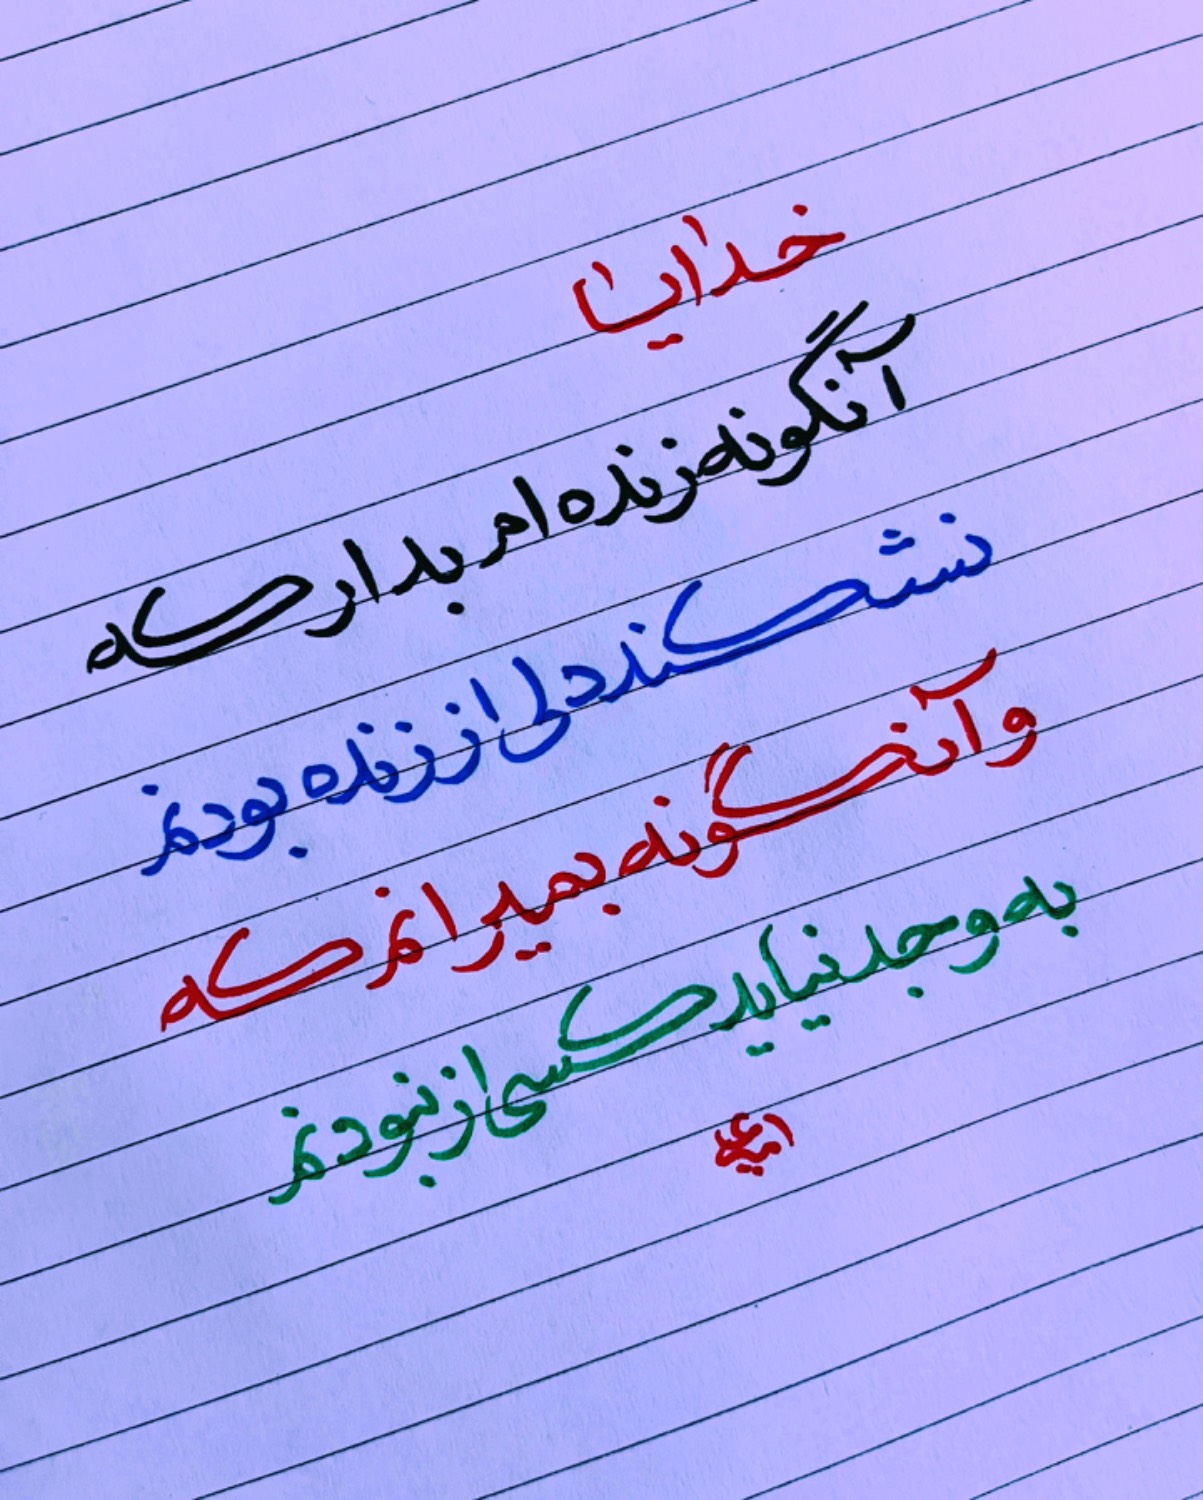 خدایا
آنگونه زنده ام بدار که
نشکند دلی از زنده بودنم
و آنگونه بمیرانم که
به وجد نیاید کسی از نبودنم